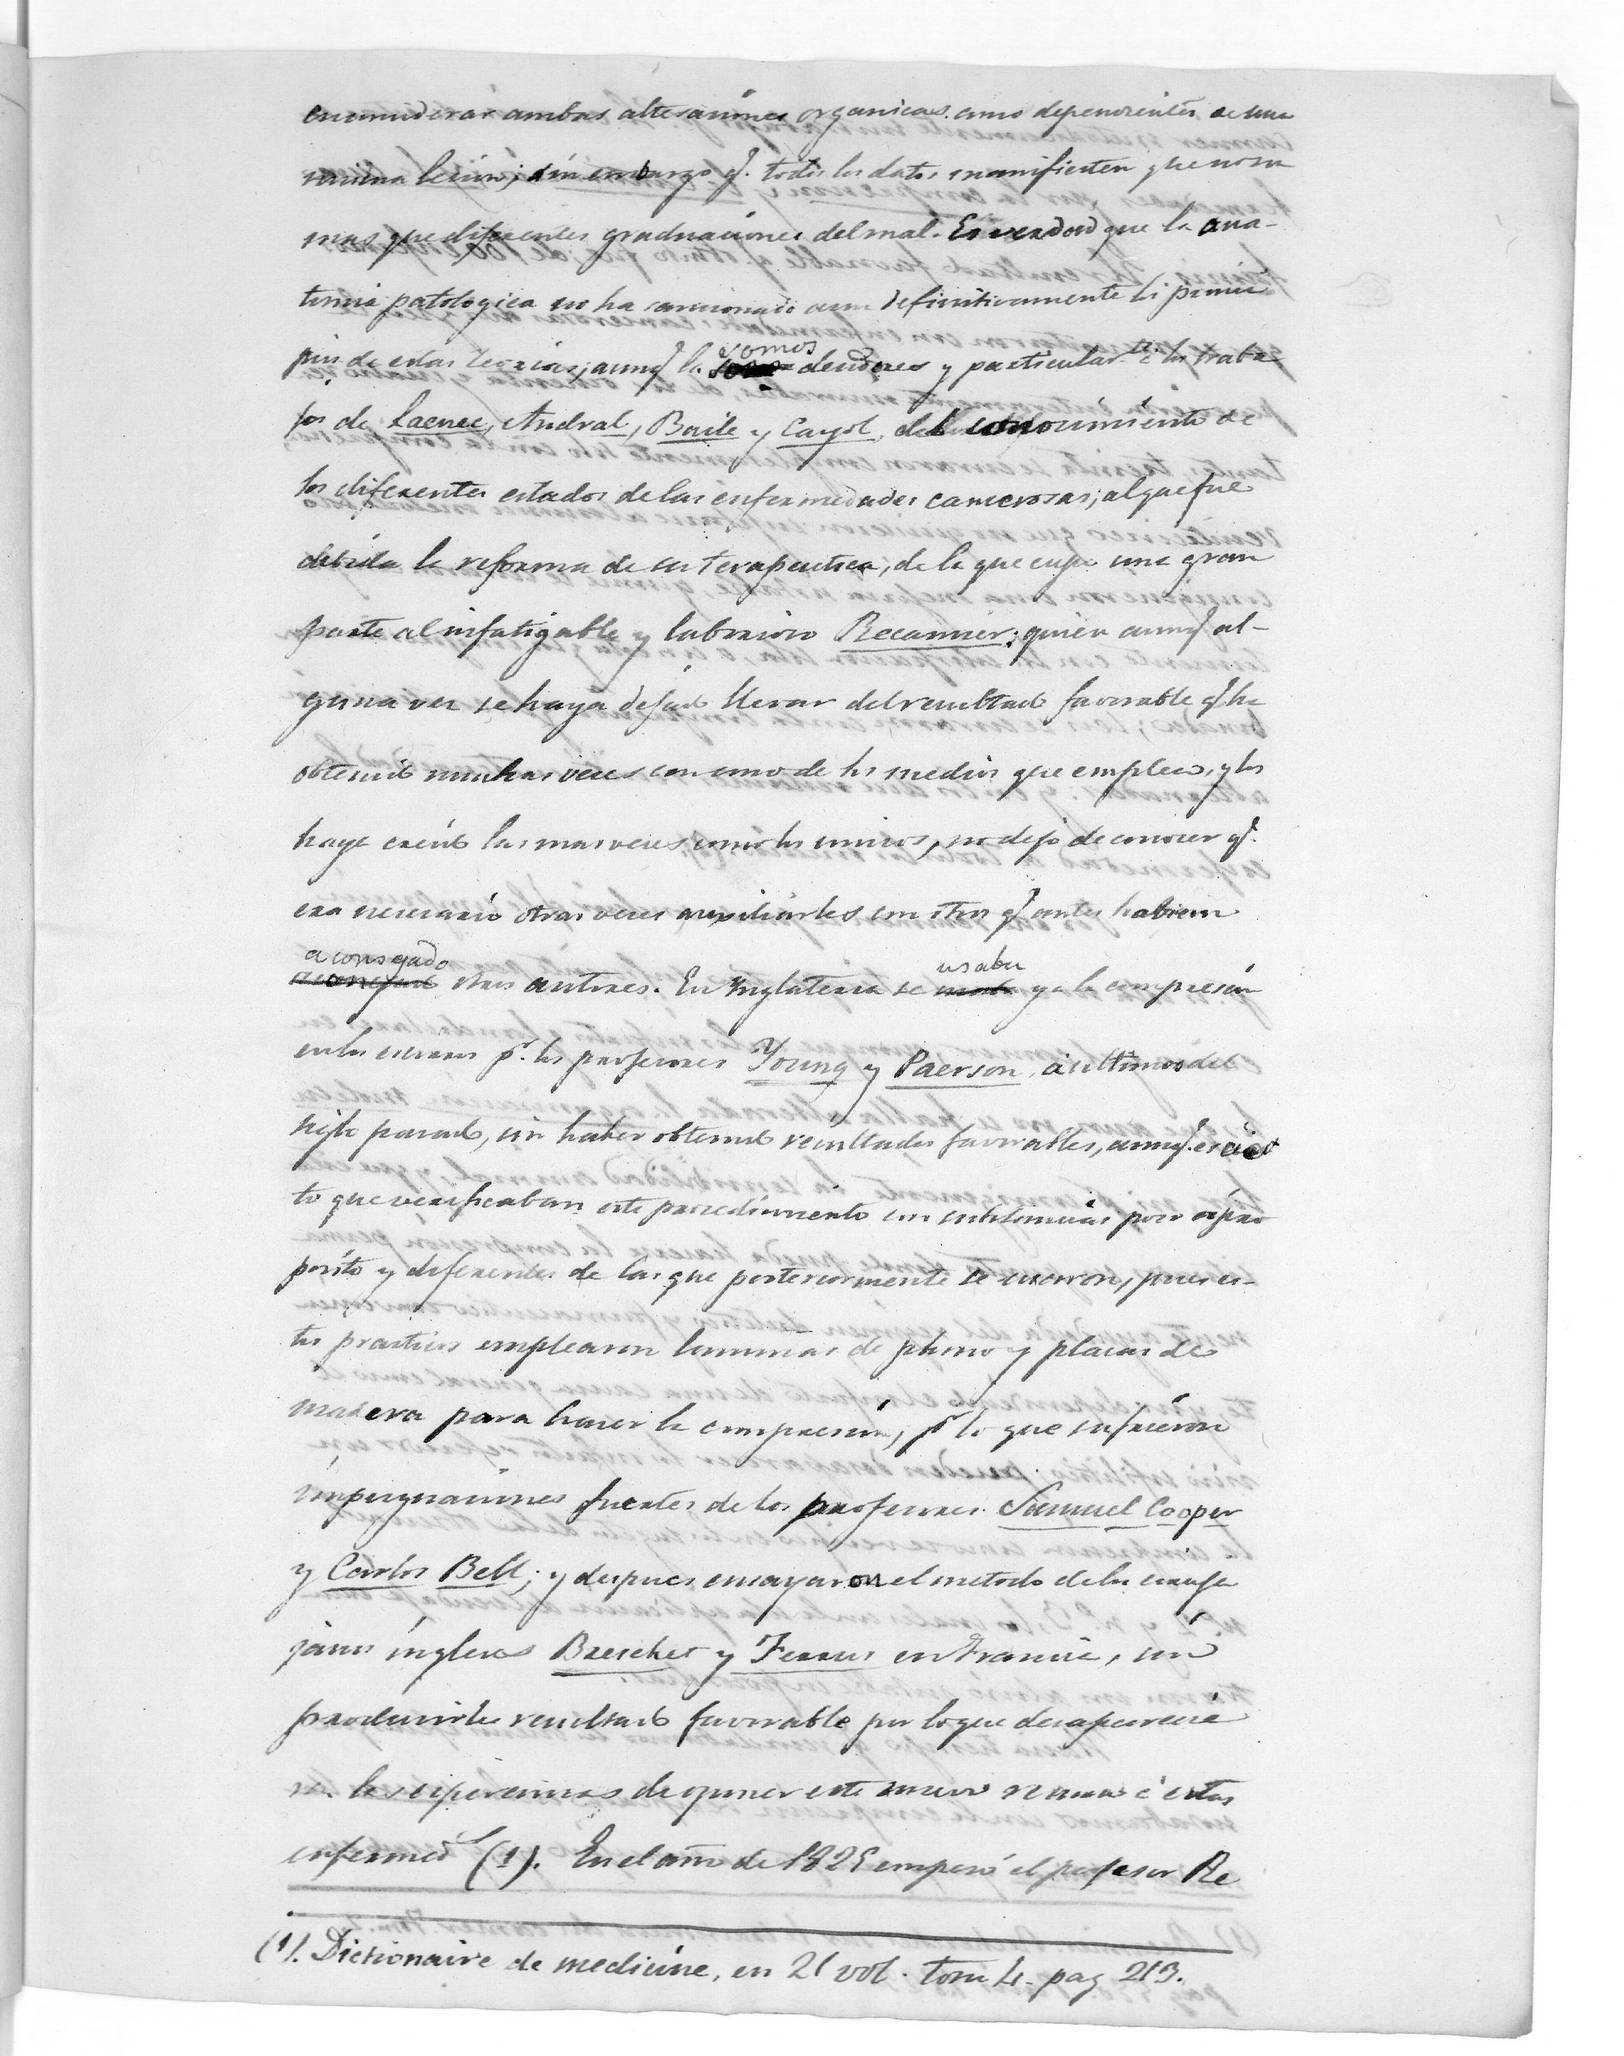 en considerar ambas alteraciones organicas como dependientes de una
misma lesion; sin embargo q.e todos los datos manifiesten que no son
mas que diferentes graduaciones del mal. Es verdad que la ana-
tomia patologica no ha sancionado aun definitivamente los princi
pios de estas teorias; aunq.e le somos deudores y particular.te á los traba
jos de Laenec, Andral, Baile y Cayol, del conocimiento de
los diferentes estados de las enfermedades cancerosas; al que fue
debida la reforma de su terapeutica, de la que cupo una gran
parte al infatigable y laborioso Recamier; quien aunq.e al-
guna vez se haya dejado llevar del resultado favorable q.e ha
obtenido muchas veces con uno de los medios que empleó, y los
haya creido las mas veces como los unicos, no dejó de conocer q.e
era necesario otras veces auxiliarles con otros q.e antes habian
aconsejado otros autores. En Ynglaterra se usaba ya la compresion
en los escirros p.r los profesores Young y Paerson, á ultimos del
siglo pasado, sin haber obtenido resultados favorables, aunq.e es cier
to que verificaban este procedimiento con substancias poco apro
posito y diferentes de las que posteriormente se usaron, pues es-
tos practicos emplearon laminas de plomo y placas de
madera para hacer la compresion, p.r lo que sufrieron
impugnaciones fuertes de los profesores Samuel Cooper
y Carlos Bell; y despues ensayaron el metodo de los ciruja
janos ingleses Breschet y Ferrus en Francia, sin
producirle resultado favorable por lo que desaparecie
ron las esperanzas de oponer este nuevo remedio á estas
enfermed.s (1). En el año de 1825 empezó el profesor Re
(1). Dictionaire de medicine, en 21 vol. tom 4. pag 213.